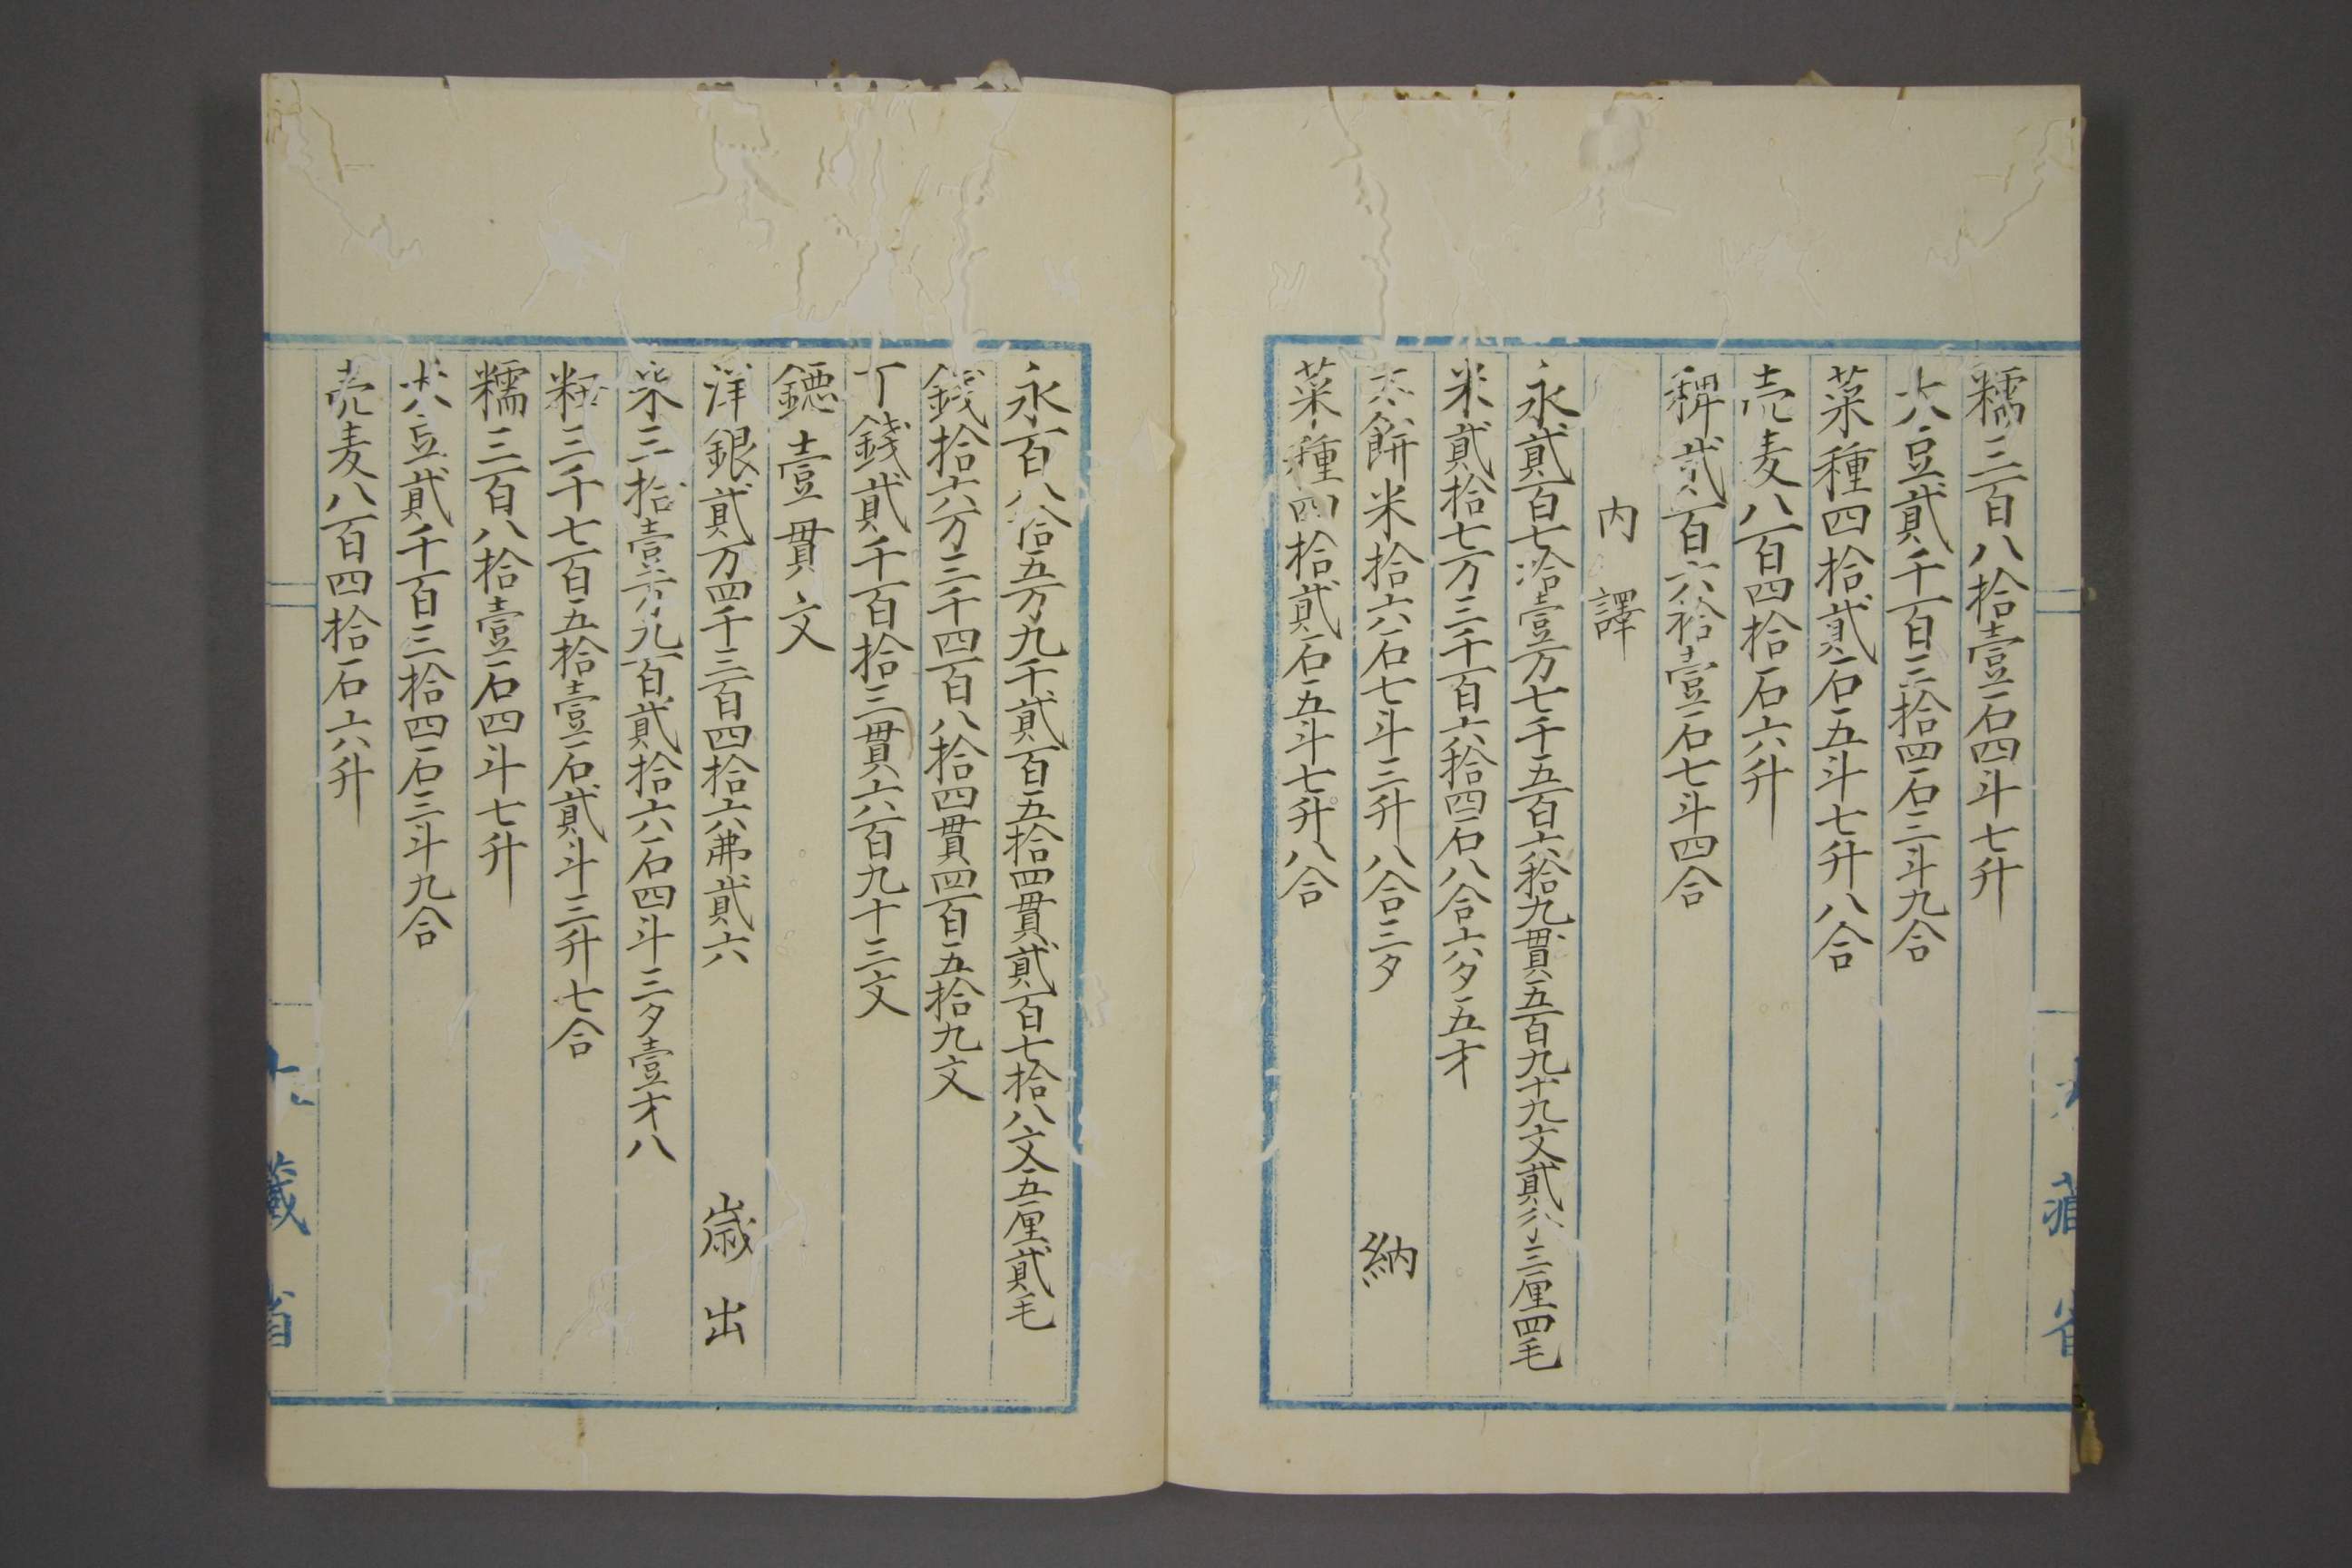 糯三百八拾壹石四斗七升
大豆貳千百三拾四石三斗九合
菜種四拾貳石五斗七升八合
売麦八百四拾石六升
稗貳百六拾壹石七斗四合
内譯
永貳百七拾壹万七千五百六拾九貫五百九十九文貳分三厘四毛
米貳拾七万三千百六拾四石八合六夕五才
餅米拾六石七斗三升八合三夕
納
菜種四拾貳石五斗七升八合
永百八拾五万九千貳百五拾四貫貳百七拾八文五厘貳毛
錢拾六万三千四百八拾四貫四百五拾九文
丁錢貳千百拾三貫六百九十三文
鐚壹貫文
洋銀貳万四千三百四拾六弗貳六
歳出
米三拾壹万九百貳拾六石四斗三夕壹才八
籾三千七百五拾壹石貳斗三升七合
糯三百八拾壹石四斗七升
大豆貳千百三拾四石三斗九合
売麦八百四拾石六升
藏省